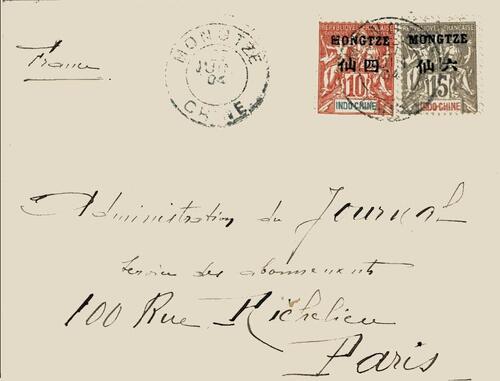 France
MONGTZE
JUI
04
CHINE
RÉPUBLIQUE FRANÇAISE
MONGTZE
仙四
10
INDO-CHINE
MONGTZE
仙六
15
INDO-CHINE
Administration du Journal
Service des abonnements
100 Rue Richelieu
Paris